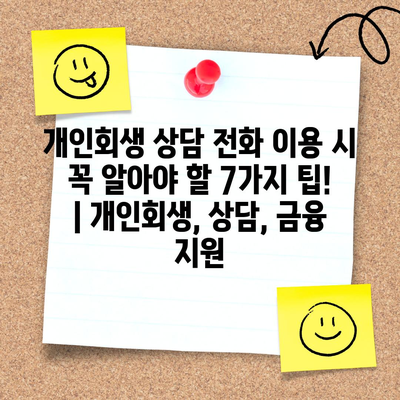 개인회생 상담 전화 이용 시
꼭 알아야 할 7가지 팁!
| 개인회생, 상담, 금융
지원